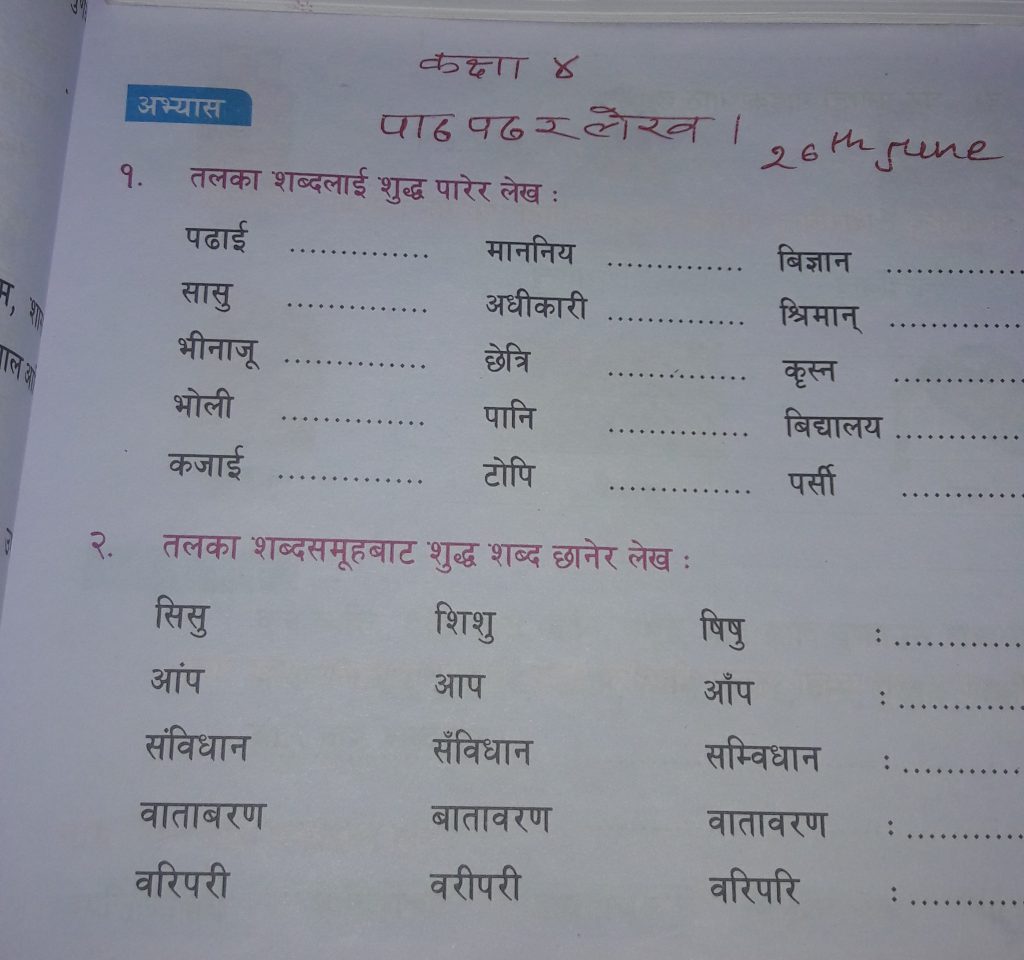 कक्षा ४
अभ्यास
पाठ पढेर लेख ।
26th June
१. तलका शब्दलाई शुद्ध पारेर लेख :
पढाई .............. माननिय .............. बिज्ञान ..............
सासु .............. अधीकारी .............. श्रिमान् ..............
भीनाजू .............. छेत्रि .............. कृस्न ..............
भोली .............. पानि .............. बिद्यालय ..............
कजाई .............. टोपि .............. पर्सी ..............
२. तलका शब्दसमूहबाट शुद्ध शब्द छानेर लेख :
सिसु शिशु षिषु : ..............
आंप आप आँप : ..............
संविधान सँविधान सम्विधान : ..............
वाताबरण बातावरण वातावरण : ..............
वरिपरी वरीपरी वरिपरि : ..............